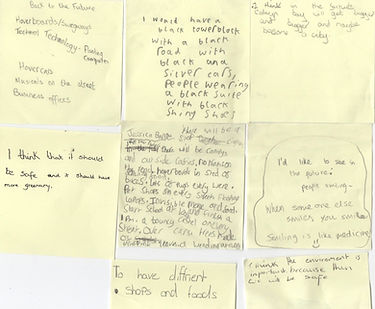 Back to the Future
Hoverboards/Swegways
Technol Technology. Floating
Computers
Hovercars
Musicals on the street
Business offices
I would have a
black towerblock
with a black
road with
black and
silver cars,
people wearing
a black suite
with black
shiny shoes
I think in the future
Colwyn Bay will get bigger
and bigger and maybe
become a city.
I think that it should
be safe and it should have
more greenery.
Jessica There will be a
there will be
and outside
hoverboards in sted of
bikes, Lots of hugs every were.
Pet Shops on every Street, Floating
Invisible
a bouncy on every
Street, Over
I'd like to see in
the future.
people smiling.
When some one else
smiles you smile
Smiling is like medicine
To have diffrent
• shops and foods
I think the enviroment is
important because then
we will be safe